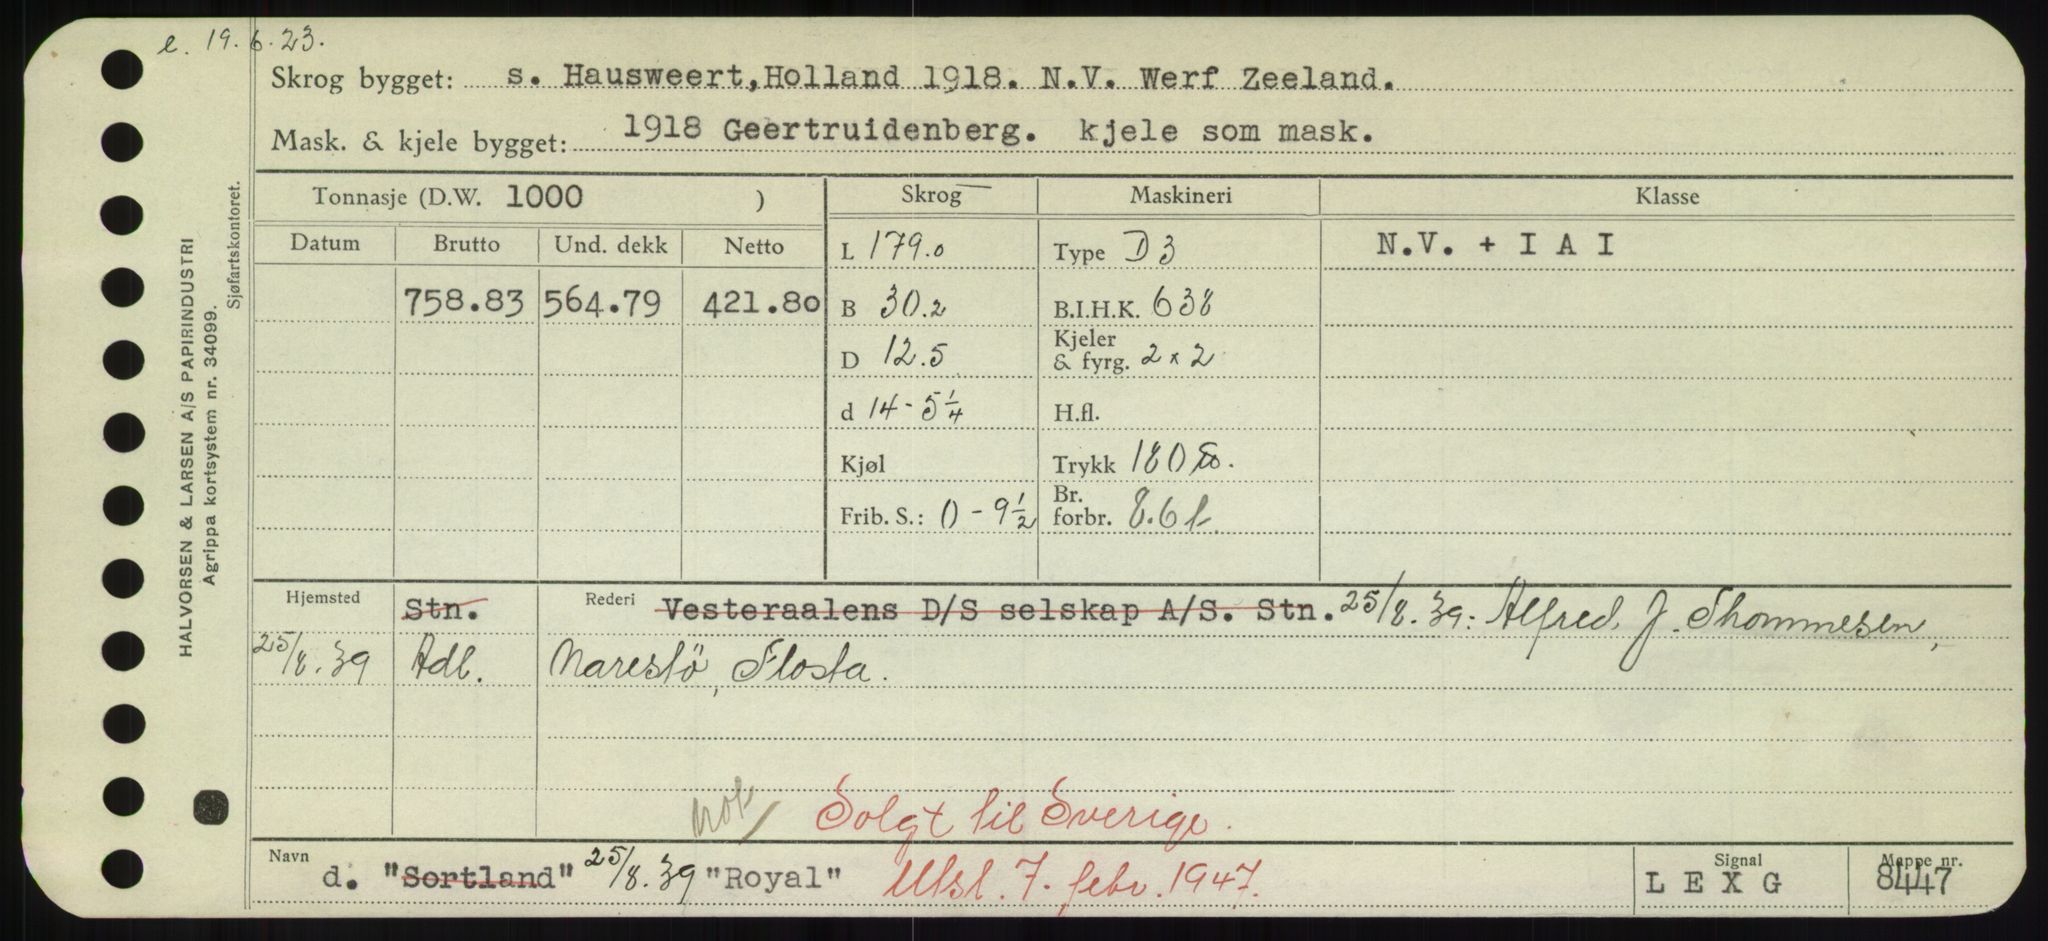 e. 19.6.23.
Skrog bygget: s. Hausweert, Holland 1918. N.V. Werf Zeeland.
Mask. & kjele bygget: 1918 Geertruidenberg. kjele som mask.
Tonnasje (D.W. 1000 ) Skrog Maskineri Klasse
Datum Brutto Und. dekk Netto L 179.0 Type D 3 N.V. + I A I
758.83 564.79 421.80 B 30.2 B.I.H.K. 638
D 12.5 Kjeler & fyrg. 2 x 2
d 14 - 5 1/4 H.fl.
Kjøl Trykk 180
Frib. S.: 0 - 9 1/2 Br. forbr. 8.6 t.
Hjemsted Stn. Rederi Vesteraalens D/S selskap A/S. Stn. 25/8.39: Alfred J. Thommesen,
25/8.39 Adl. Narestö, Flosta.
nok Solgt til Sverige.
Navn d. "Sortland" 25/8.39 "Royal" Utsl. 7. febr. 1947. Signal L E X G Mappe nr. 8447
HALVORSEN & LARSEN A/S PAPIRINDUSTRI
Agrippa kortsystem nr. 34099.
Sjøfartskontoret.